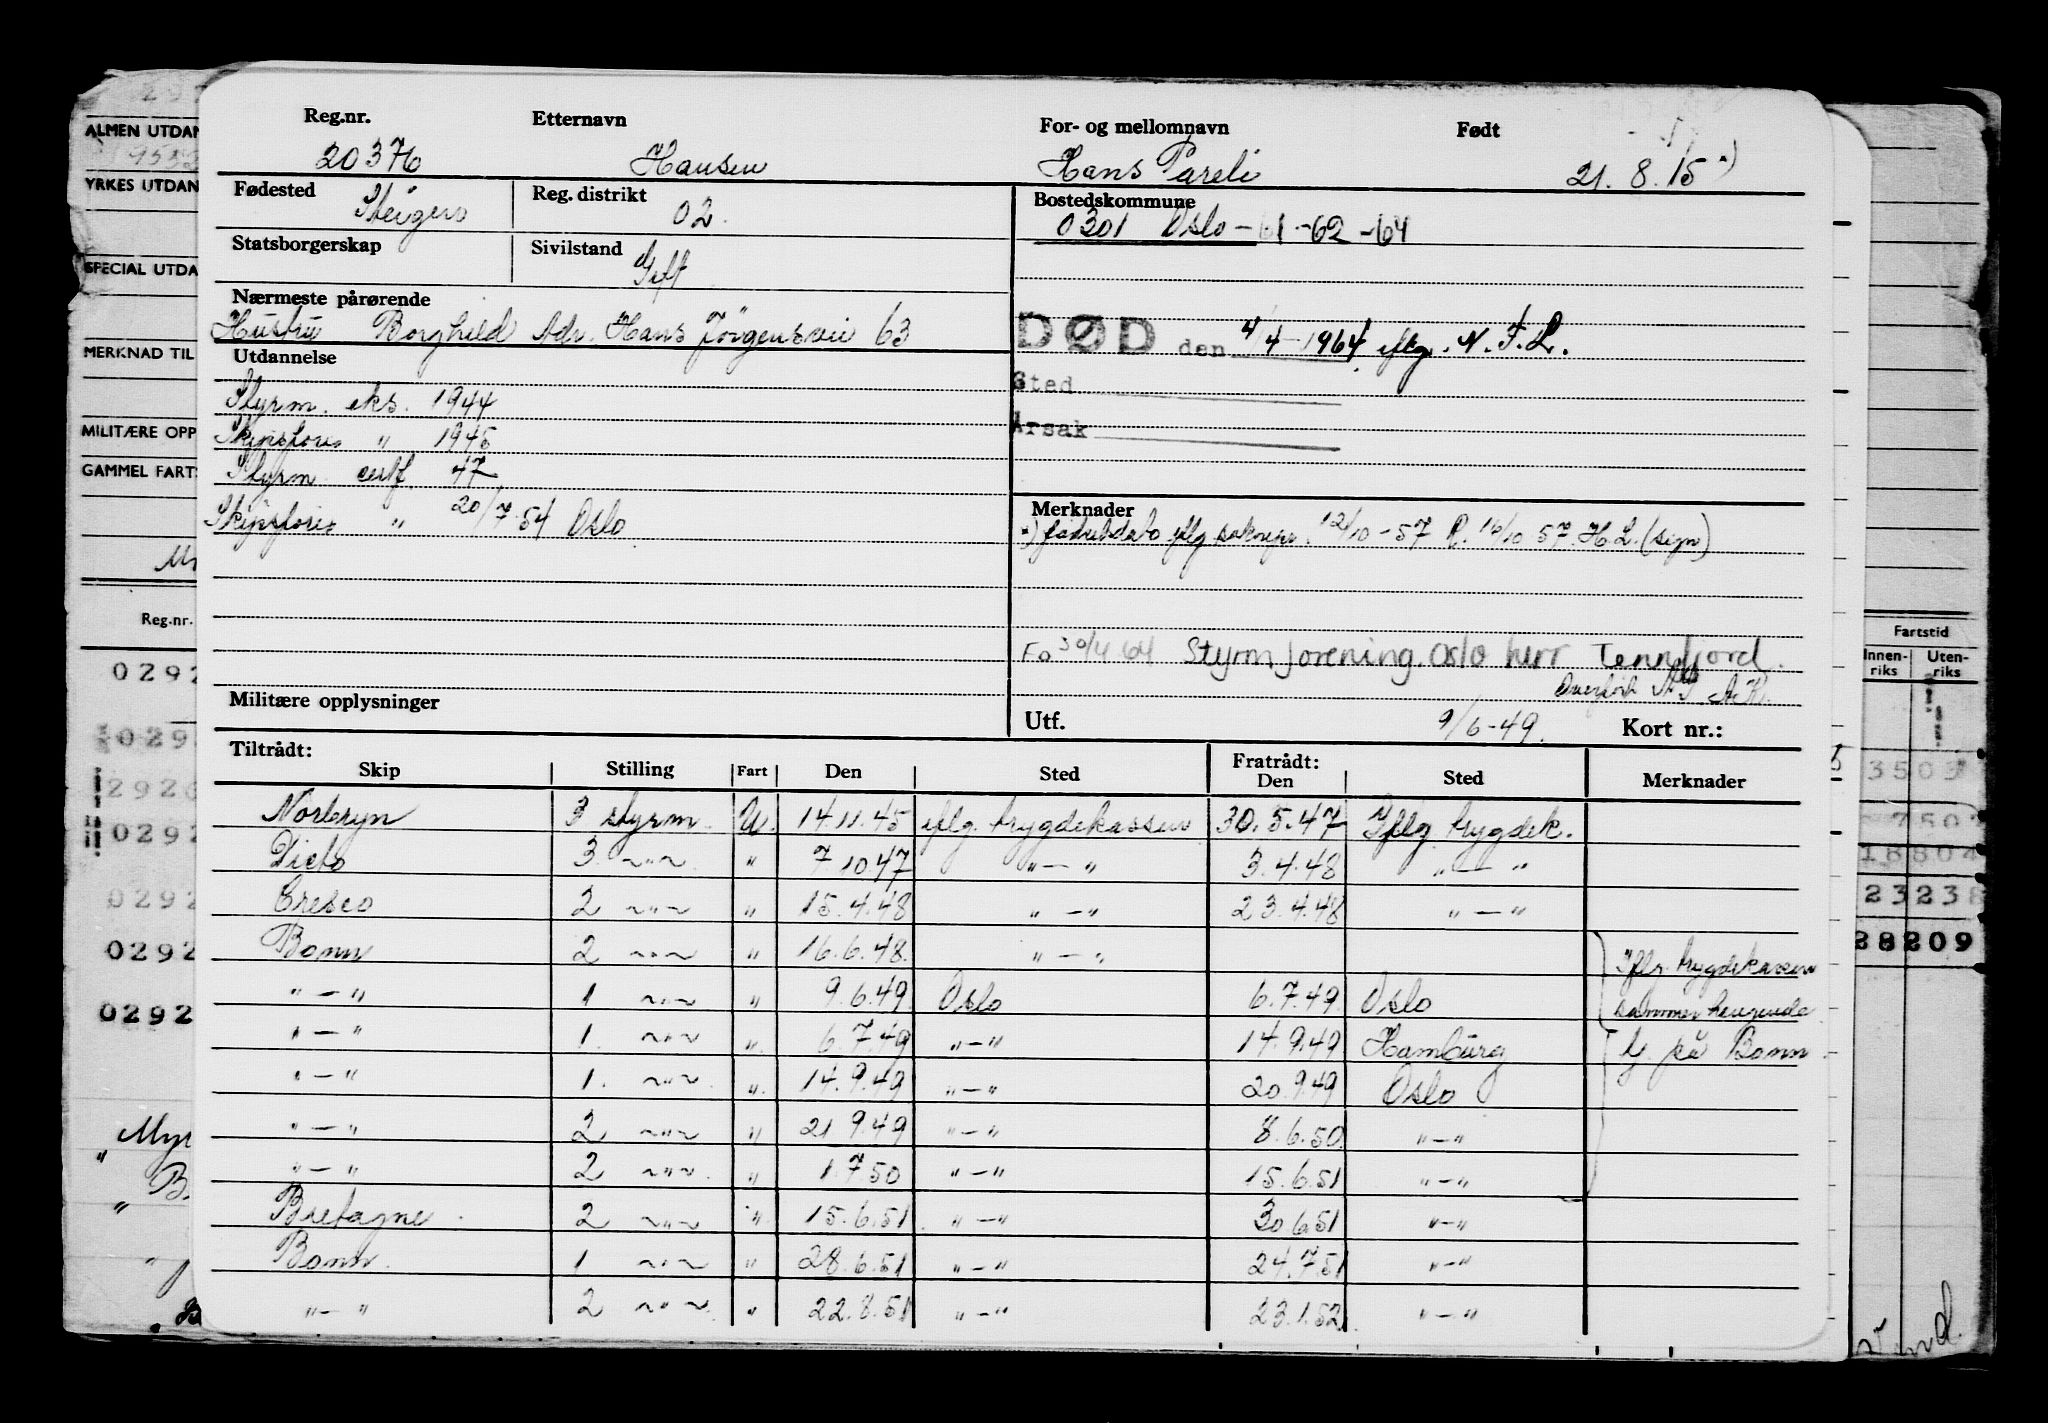 Reg.nr. Etternavn For- og mellomnavn Født
20376 Hansen Hans Pareli 21. 8. 15 *)
Fødested Steigen Reg. distrikt 02. Bostedskommune
0301 Oslo -61 -62 -64
Statsborgerskap Sivilstand Gift
Nærmeste pårørende
Hustru Borghild Adr. Hans Jørgensvei 63
DØD den 4/4-1964 iflg. N.F.L.
Sted
Årsak
Utdannelse
Styrm. eks. 1944
Skipsfører " 1945
Styrm. cert. 47
Skipsfører " 20/7.54 Oslo
Merknader
*) fødselsdato iflg 12/10-57 R. 16/10 57. H.L. (sign)
30/4 64 Styrm.forening. Oslo herr Tennfjord.
Overført
Militære opplysninger
Utf. 9/6-49. Kort nr.:
Tiltrådt: Fratrådt:
Skip Stilling Fart Den Sted Den Sted Merknader
Norbryn 3 styrm. U. 14.11.45 iflg. trygdekassen 30.5.47 Iflg trygdek.
Dicto 3 ~"~ " 7.10.47 "-" 3.4.48 "-"
Cresco 2 ~"~ " 15.4.48 "-" 23.4.48 "-"
Bonn 2 ~"~ " 16.6.48. "-" Iflg. trygdekassen
"-" 1 ~"~ " 9.6.49. Oslo 6.7.49 Oslo sammenhengende
"-" 1. ~"~ " 6.7.49 "-" 14.9.49 Hamburg tj. på Bonn
"-" 1. ~"~ " 14.9.49 "-" 20.9.49 Oslo
"-" 2 ~"~ " 21.9.49 "-" 8.6.50. "-"
"-" 2 ~"~ " 1.7.50 "-" 15.6.51 "-"
Bretagne 2 ~"~ " 15.6.51. "-" 30.6.51 "-"
Bonn 1 ~"~ " 28.6.51 "-" 24.7.51 "-"
"-" 2 ~"~ " 22.8.51 "-" 23.1.52 "-"
ALMEN UTDAN
YRKES UTDAN
SPECIAL UTDA
MERKNAD TIL
MILITÆRE OPP
GAMMEL FARTS
Reg.nr.
0292
0292
0292
0292
0292
0292
0292
Myr
Fartstid
Innen-riks Uten-riks
3503
7507
18804
23238
28209